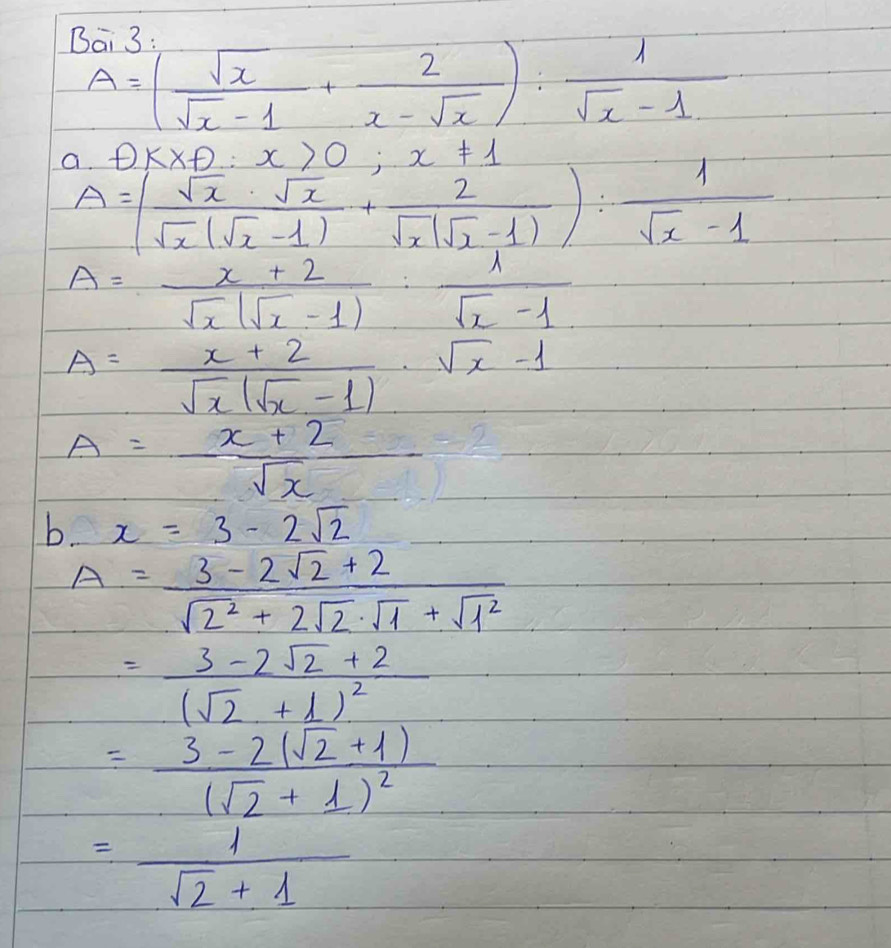 Bài 3:
A = (√x/(√x - 1) + 2/(x - √x)) : 1/(√x - 1)
a. ĐKXĐ: x > 0 ; x ≠ 1
A = (√x · √x/(√x(√x - 1)) + 2/(√x(√x - 1))) : 1/(√x - 1)
A = (x + 2)/(√x(√x - 1)) : 1/(√x - 1)
A = (x + 2)/(√x(√x - 1)) · √x - 1
A = (x + 2)/√x
b. x = 3 - 2√2
A = (3 - 2√2 + 2)/(√2² + 2√2·√1 + √1²)
= (3 - 2√2 + 2)/(√2 + 1)²
= (3 - 2(√2 + 1))/(√2 + 1)²
= 1/(√2 + 1)